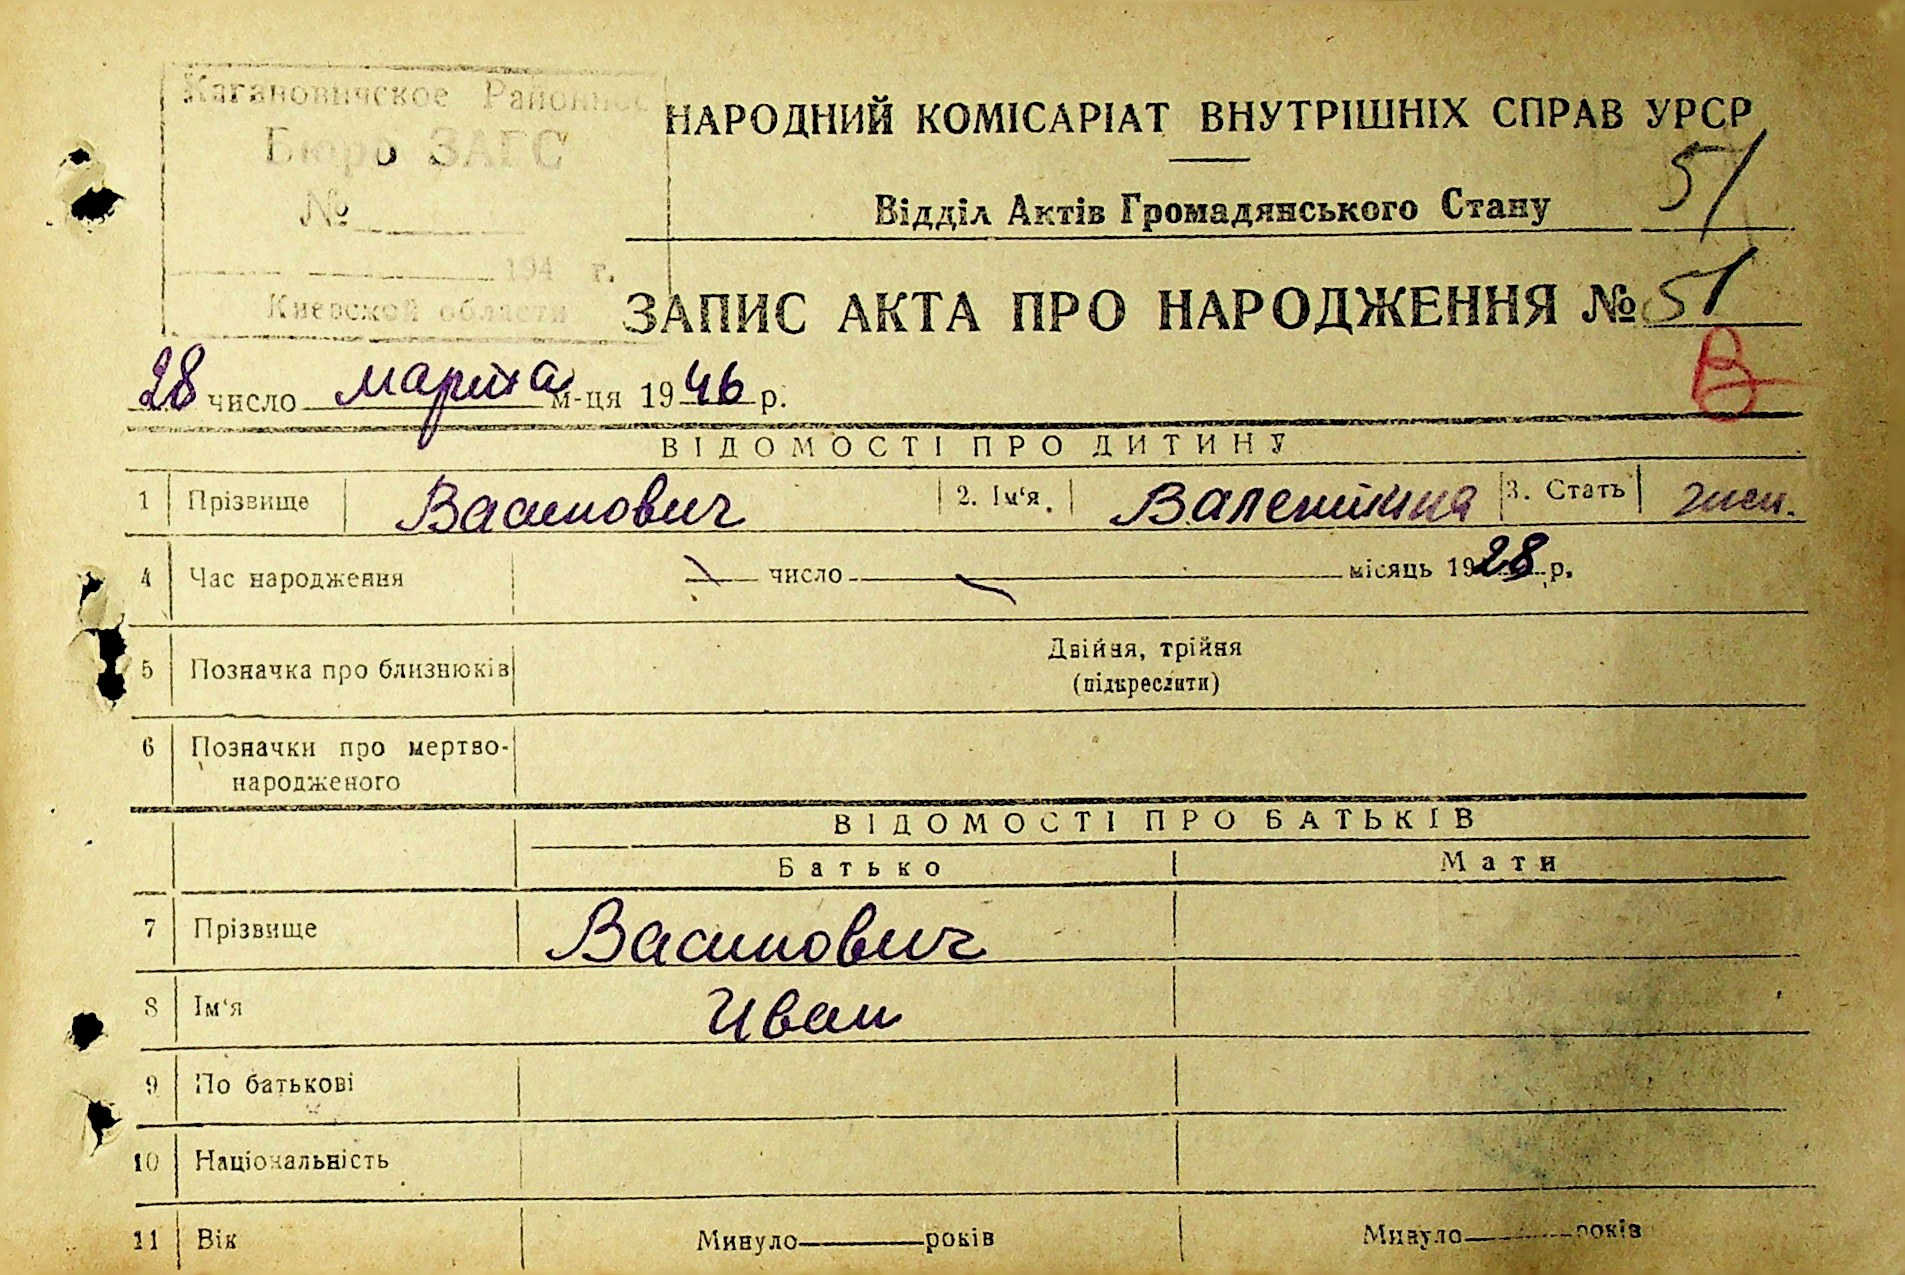 Кагановичское Районное
Бюро ЗАГС
№
194 г.
Киевской области
НАРОДНИЙ КОМІСАРІАТ ВНУТРІШНІХ СПРАВ УРСР
51
Відділ Актів Громадянського Стану
ЗАПИС АКТА ПРО НАРОДЖЕННЯ № 51
В
28 число марта м-ця 1946 р.
ВІДОМОСТІ ПРО ДИТИНУ
1 Прізвище Васинович 2. Ім'я. Валентина 3. Стать жен.
4 Час народження число місяць 1928 р.
5 Позначка про близнюків Двійня, трійня
(підкреслити)
6 Позначки про мертво-
народженого
ВІДОМОСТІ ПРО БАТЬКІВ
Батько Мати
7 Прізвище Васинович
8 Ім'я Иван
9 По батькові
10 Національність
11 Вік Минуло років Минуло років